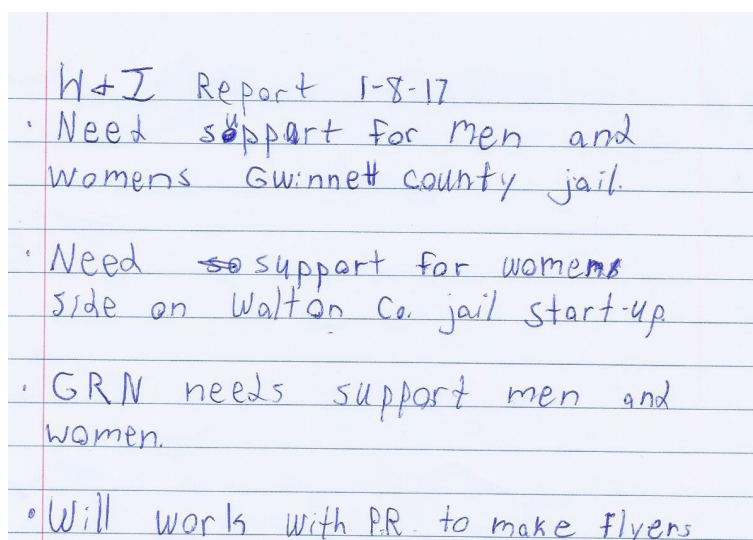 H + I Report 1-8-17
· Need support for men and
womens Gwinnett county jail.
· Need so support for womens
side on Walton Co. jail start-up.
· GRN needs support men and
women.
· Will work with P.R. to make flyers